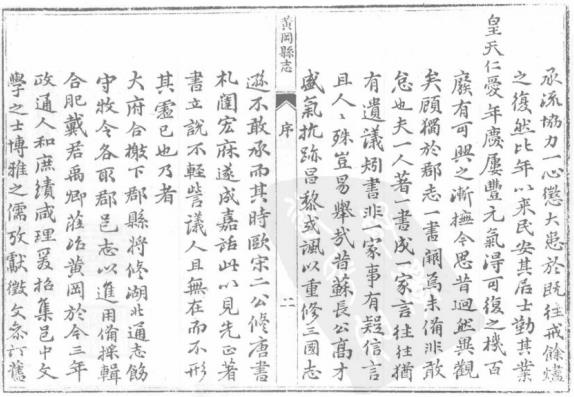 承流協力一心懲大患於既往戒餘燼
之復然比年以來民安其居士勤其業
皇天仁愛年慶屢豐元氣淂可復之機百
廢有可興之漸撫今思昔迥然異觀
矣顧獨於郡志一書闕焉未備非敢
怠也夫一人著一書成一家言往往猶
有遺議矧書非一家事有疑信言
且人人殊豈易舉哉昔蘇長公高才
盛氣抗跡昌黎或諷以重修三國志
黃岡縣志
序
二
遜不敢承而其時歐宋二公修唐書
札闥宏庥遂成嘉話此以見先正著
書立說不輕訾議人且無在而不形
其虛已也乃者
大府合檄下郡縣將修湖北通志飭
守牧令各取郡邑志以進用備採輯
合肥戴君禹卿蒞治黃岡於今三年
政通人和庶績咸理爰招集邑中文
學之士博雅之儒攷獻徵文叅訂舊